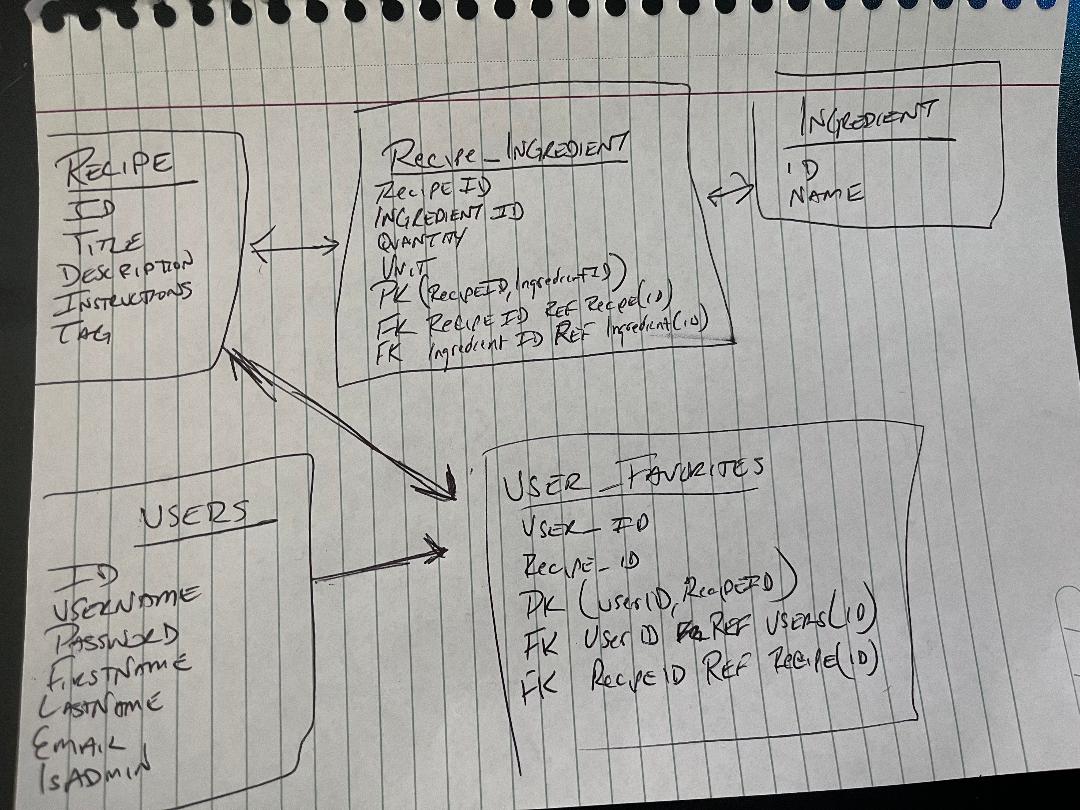 RECIPE
ID
TITLE
DESCRIPTION
INSTRUCTIONS
TAG
Recipe_INGREDIENT
RECIPE ID
INGREDIENT ID
QUANTITY
UNIT
PK (RecipeID, IngredientID)
FK RECIPE ID REF Recipe(ID)
FK Ingredient ID REF Ingredient(ID)
INGREDIENT
ID
NAME
USERS
ID
USERNAME
PASSWORD
FIRSTNAME
LASTNAME
EMAIL
ISADMIN
USER_FAVORITES
USER_ID
Recipe_ID
PK (userID, RecipeID)
FK User ID REF USERS(ID)
FK RecipeID REF RECIPE(ID)